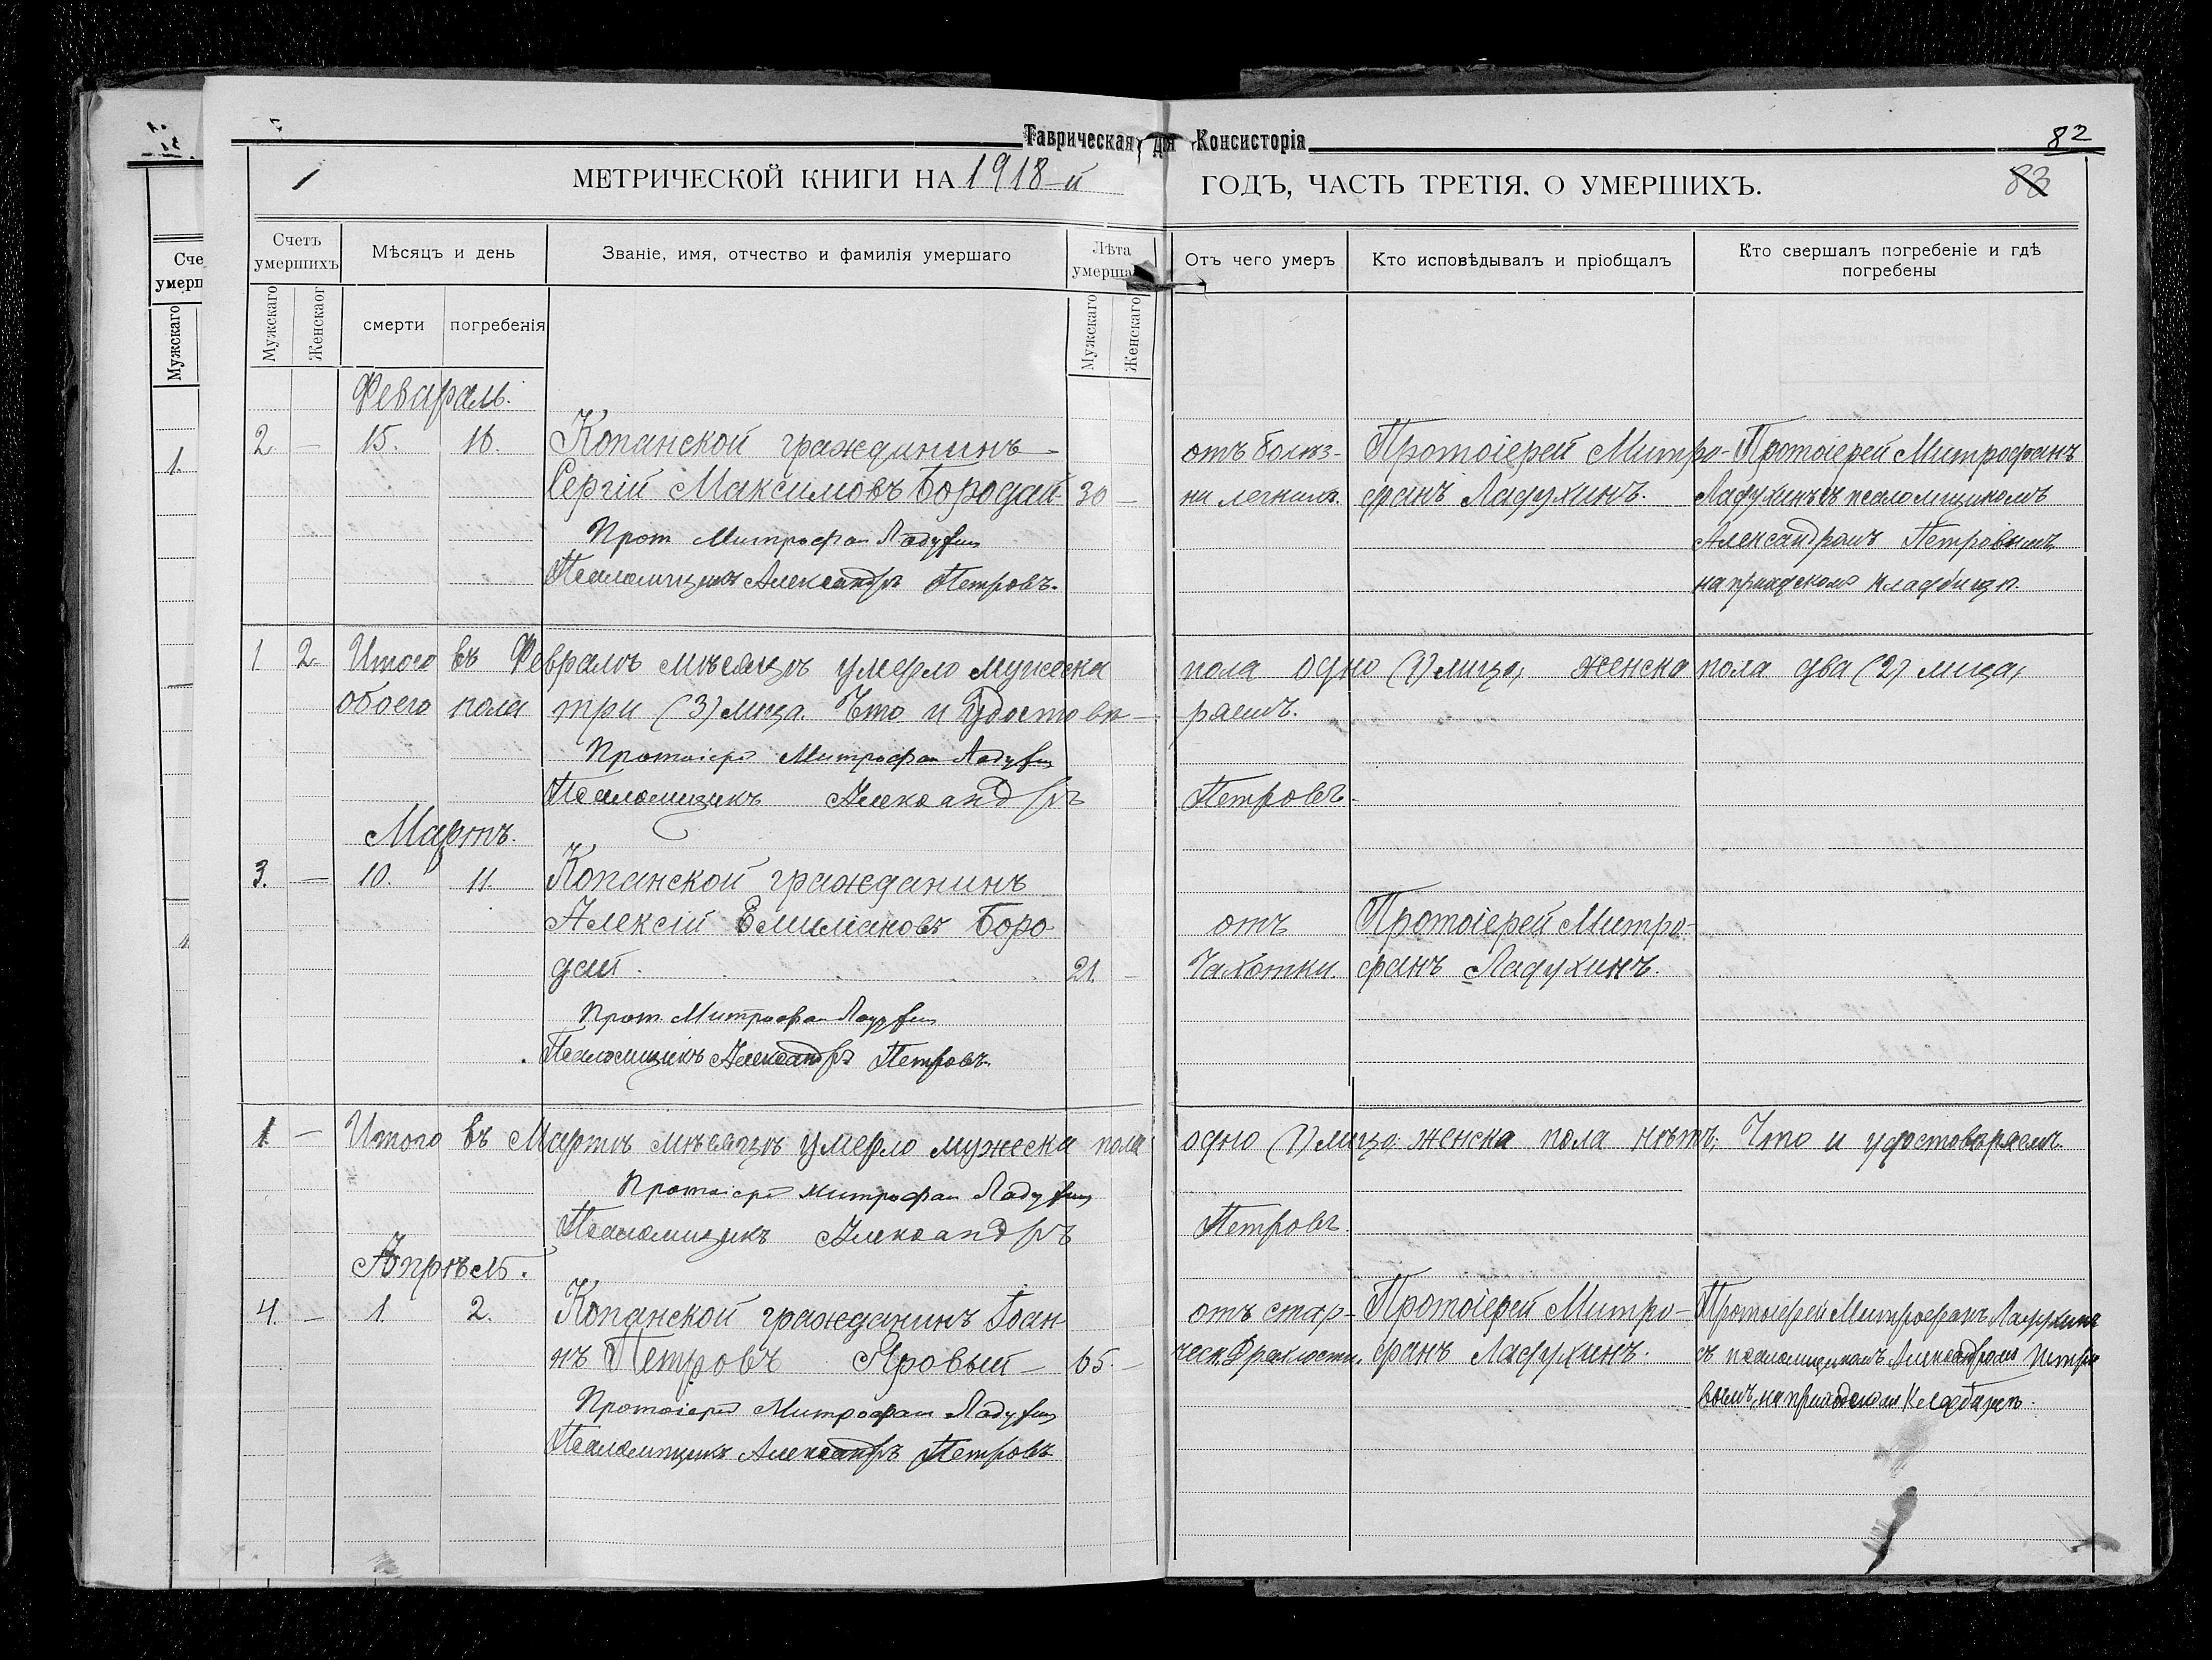 Таврическая Д Консисторія
82
МЕТРИЧЕСКОЙ КНИГИ НА 1918-й ГОДЪ, ЧАСТЬ ТРЕТІЯ. О УМЕРШИХЪ.
83
Счетъ умершихъ
Мѣсяцъ и день
Званіе, имя, отчество и фамилія умершаго
Лѣта
умерша
Отъ чего умеръ
Кто исповѣдывалъ и пріобщалъ
Кто свершалъ погребеніе и гдѣ погребены
Мужскаго
Женскаог
смерти
погребенія
Мужскаго
Женскаго
Сче
умерш
Мужскаго
1.
Февараль.
2 — 15. 16. Копанской гражданинъ отъ болѣз- Протоіерей Митро- Протоіерей Митрофанъ
Сергій Максимовъ Бородай 30 — ни легкихъ. фанъ Ладухинъ. Ладухинъ съ псаломщикомъ
Прот Митрофан Ладухин Александромъ Петровымъ
Псаломщикъ Александръ Петровъ. на приходскомъ кладбищѣ.
1 2 Итого въ Февралѣ мѣсяцѣ умерло мужеска пола одно (1) лицо, женска пола два (2) лица,
обоего пола три (3) лица. Что и удостовѣ- ряемъ.
Протоіерей Митрофан Ладухин
Псаломщикъ Александръ Петровъ.
Мартъ.
3. — 10. 11. Копанской гражданинъ
Алексій Емиліановъ Боро отъ Протоіерей Митро-
дай. 21. — Чахотки. фанъ Ладухинъ.
Прот. Митрофан Ладухин
Псаломщикъ Александръ Петровъ.
1 — Итого въ Мартѣ мѣсяцѣ умерло мужеска пола одно (1) лицо, женска пола нѣтъ; Что и удостоваряемъ.
Протоіерей Митрофан Ладухин
Псаломщикъ Александръ Петровъ.
Апрѣль.
4. — 1. 2. Копанской гражданинъ Іоан отъ стар- Протоіерей Митро- Протоіерей Митрофанъ Ладухинъ
нъ Петровъ Яровый — 65 — ческ. Дряхлости. фанъ Ладухинъ. съ псаломщикомъ Александромъ Петро
Протоіерей Митрофан Ладухин вымъ, на приходском Кладбищѣ.
Псаломщикъ Александръ Петровъ